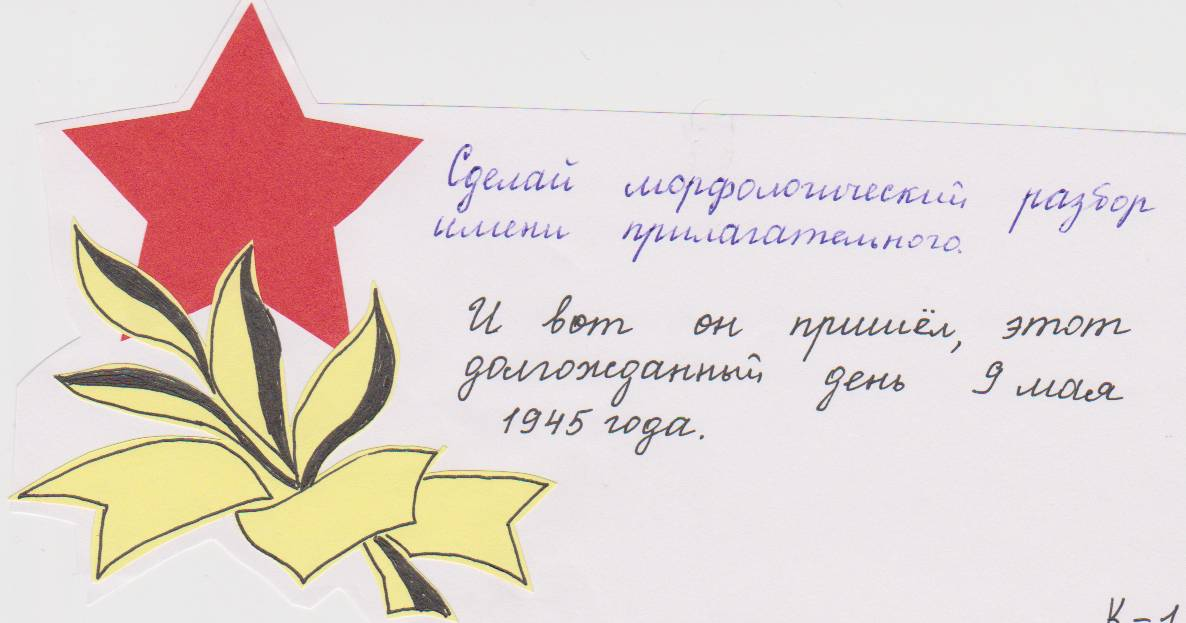 Сделай морфологический разбор
имени прилагательного.
И вот он пришёл, этот
долгожданный день 9 мая
1945 года.
К-1